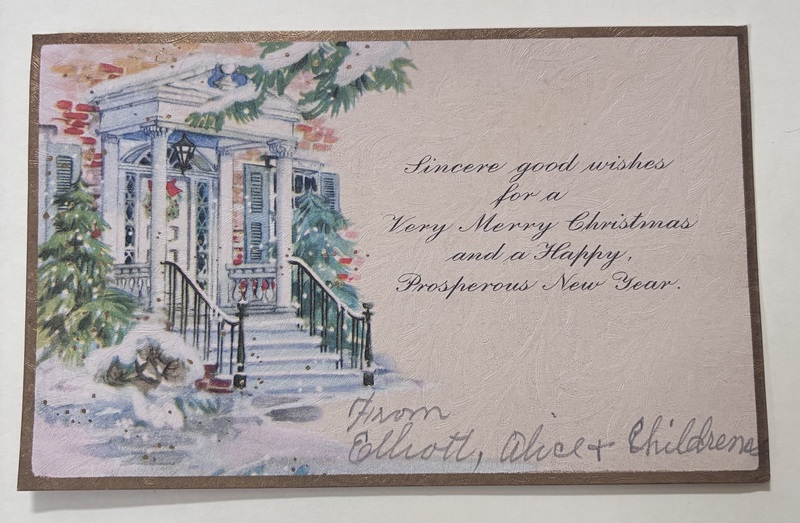 Sincere good wishes
for a
Very Merry Christmas
and a Happy,
Prosperous New Year.
From
Elliott, Alice + Childrens